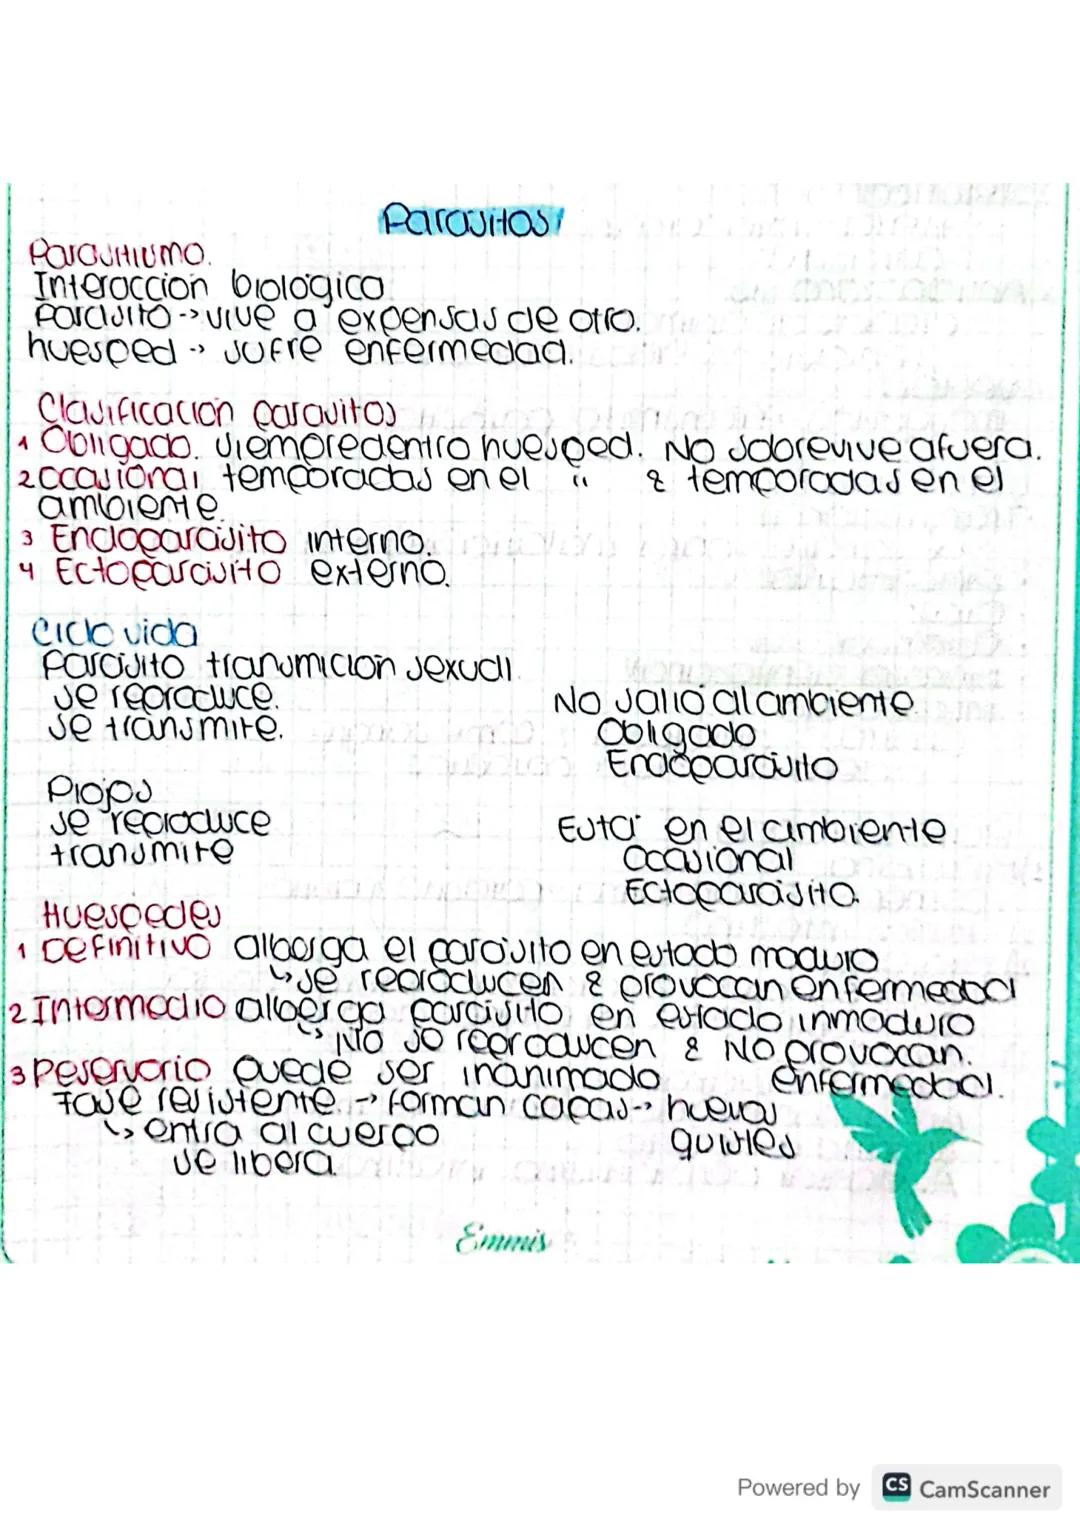 Parasitos
Parasitismo.
Interacción biológica
Parásito -> vive a expensas de otro.
huesped -> sufre enfermedad.
Clasificación parasitos
1 Obligado. siempre dentro huesped. No sobrevive afuera.
2 occasional temporadas en el " & temporadas en el
ambiente.
3 Endoparásito interno.
4 Ectoparásito externo.
Ciclo vida
Parásito transmición sexual.
se reproduce. No salió al ambiente.
se transmite. Obligado
Endoparásito
Piojos
se reproduce Está en el ambiente
transmite Occasional
Ectoparásito.
Huespedes
1 Definitivo alberga el parásito en estado maduro
↳ se reproducen & provocan enfermedad
2 Intermedio alberga parásito en estado inmaduro
↳ No se reproducen & No provocan.
3 Reservorio puede ser inanimado enfermedad.
Fase resistente -> forman capas -> huevos
↳ entra al cuerpo quistes
se libera.
Emmis
Powered by CS CamScanner